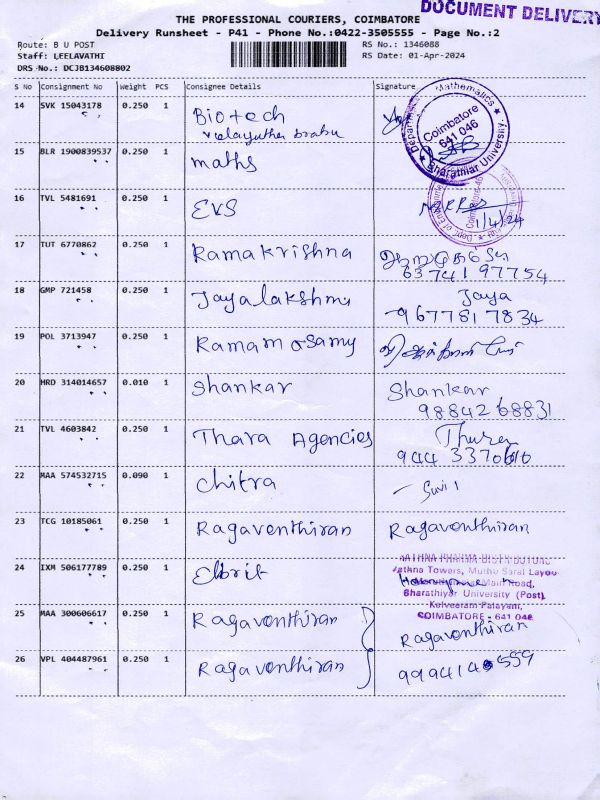 DOCUMENT DELIVERY
THE PROFESSIONAL COURIERS, COIMBATORE
Delivery Runsheet - P41 - Phone No.:0422-3505555 - Page No.:2
Route: B U POST
Staff: LEELAVATHI
DRS No.: DCJB134608802
RS No.: 1346088
RS Date: 01-Apr-2024
S No Consignment No Weight PCS Consignee Details Signature
14 SVK 15043178 0.250 1 Biotech
velayutha prabu
Mathematics
Coimbatore
641 046
Bharathiar University
15 BLR 1900839537 0.250 1 maths
16 TVL 5481691 0.250 1 EVS
1/4/24
17 TUT 6770862 0.250 1 Ramakrishna
63741 97754
18 GMP 721458 0.250 1 Jayalakshmi Jaya
9677817834
19 POL 3713947 0.250 1 Ramamosamy
20 HRD 314014657 0.010 1 Shankar Shankar
98842 68831
21 TVL 4603842 0.250 1 Thara Agencies
22 MAA 574532715 0.090 1 Chitra
23 TCG 10185061 0.250 1 Ragaventhiran Ragaventhiran
24 IXM 506177789 0.250 1 Elbrit
RATHNA PHARMA DISTRIBUTORS
Rathna Towers, Muthu Saral Layou
Main Road,
Bharathiyar University (Post),
Kalveeram Palayam,
COIMBATORE - 641 046
25 MAA 300606617 0.250 1 Ragaventhiran Ragaventhiran
26 VPL 404487961 0.250 1 Ragaventhiran